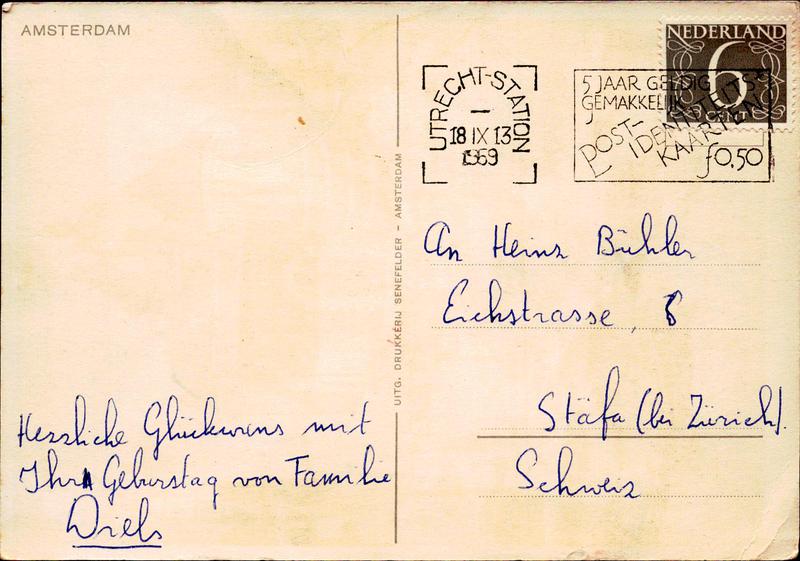 AMSTERDAM
NEDERLAND
6
CENT
UTRECHT-STATION
18 IX 13
1969
5 JAAR GELDIG
GEMAKKELIJK
POST-
IDENTITEITS-
KAARTEN
f0,50
UITG. DRUKKERIJ SENEFELDER - AMSTERDAM
An Heinz Bühler
Eichstrasse, 8
Stäfa (bei Zürich).
Schweiz
Herzliche Glückwens mit
Ihr Geburstag von Familie
Diels